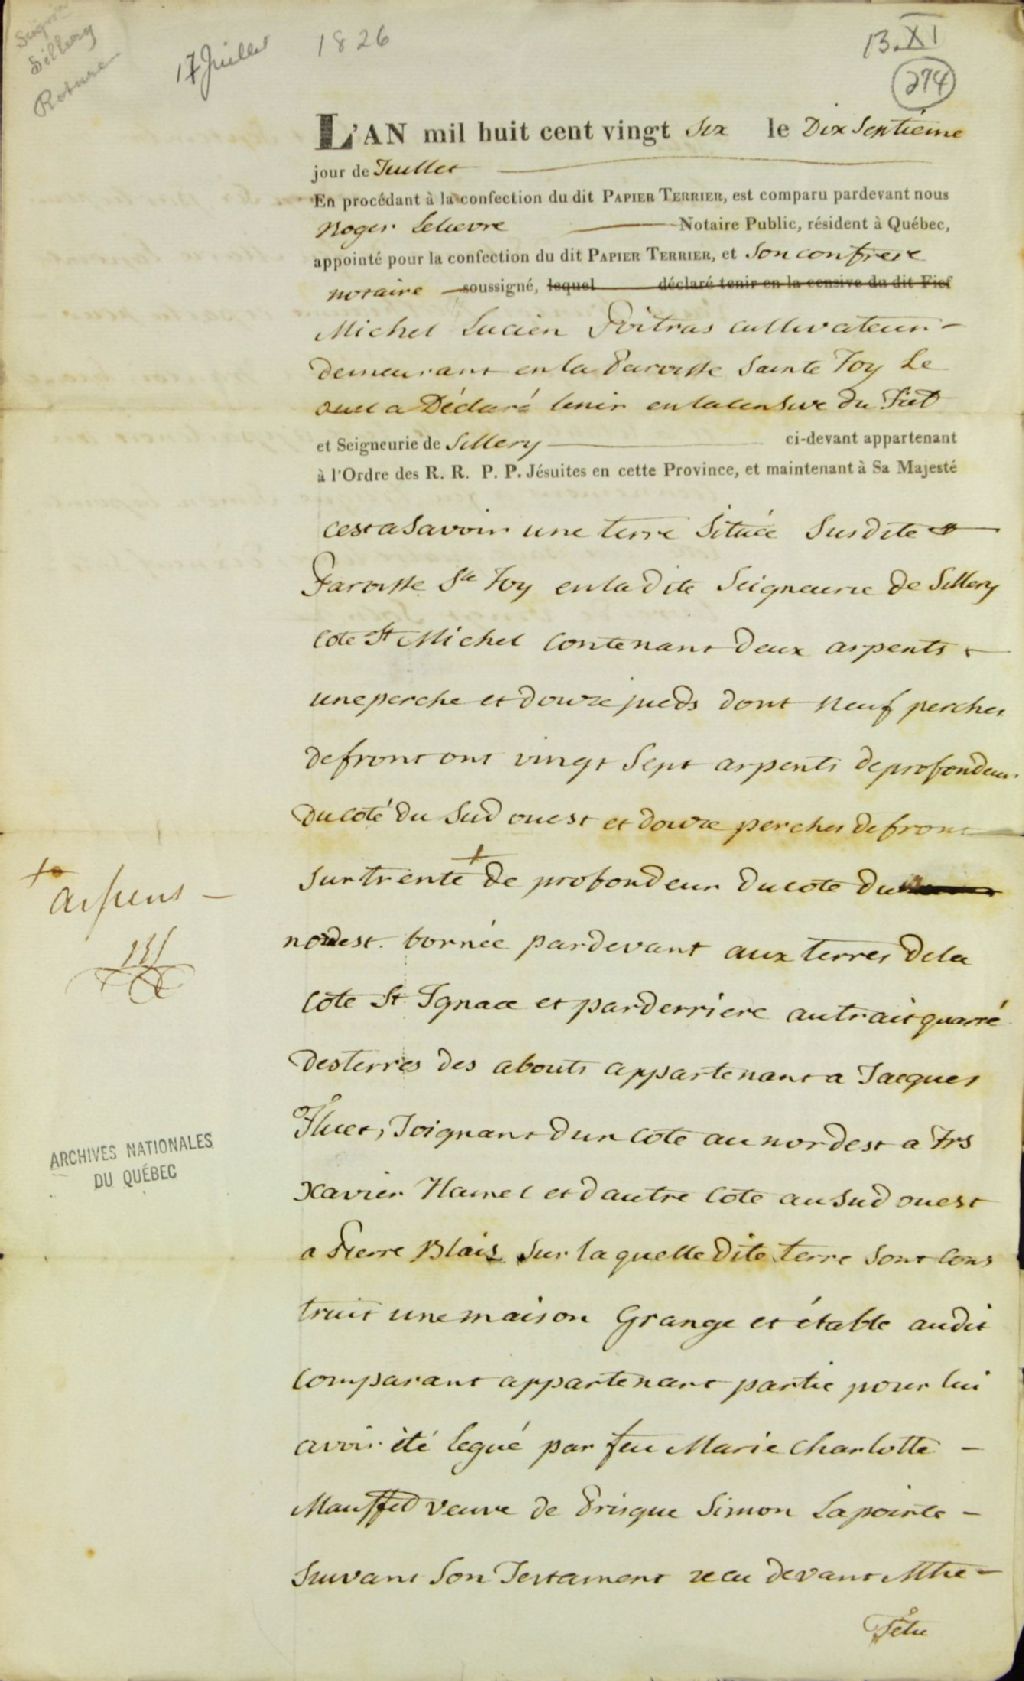 Seigrie
Sillery
Roture
17 Juillet 1826
13. XI
274
L'AN mil huit cent vingt Six le Dix Septième
jour de Juillet
En procédant à la confection du dit PAPIER TERRIER, est comparu pardevant nous
Roger Lelievre Notaire Public, résident à Québec,
appointé pour la confection du dit PAPIER TERRIER, et Son confrere
notaire soussigné, lequel déclaré tenir en la censive du dit Fief
Michel Lucien Poitras cultivateur
demeurant en la Paroisse Sainte Foy Le
quel a Déclaré tenir en la censive du Fief
et Seigneurie de Sillery ci-devant appartenant
à l'Ordre des R. R. P. P. Jésuites en cette Province, et maintenant à Sa Majesté
cest a Savoir une terre Située Susdite
Paroisse Ste Foy en la dite Seigneurie de Sillery
Cote St Michel Contenant Deux arpents
une perche et douze pieds dont neuf perches
de front ont vingt Sept arpents de profondeur
Du coté du Sud ouest et douze perches de front
Sur trente + de profondeur Du coté du
+ arpens
nordest. bornée pardevant aux terres de la
Cote St Ignace et parderriere au trait quarré
Des terres des abouts appartenant a Jacques
Fluet, Joignant d'un Coté au nordest a Frs
Xavier Hamel et d'autre Coté au Sud ouest
a Pierre Blais Sur laquelle dite terre Sont Cons
truit une maison Grange et étable au dit
Comparant appartenant partie pour lui
avoir été legué par feu Marie Charlotte
Mauffed veuve de Prisque Simon Lapointe
Suivant Son Testament recu devant Mtre
Tétu
ARCHIVES NATIONALES
DU QUÉBEC